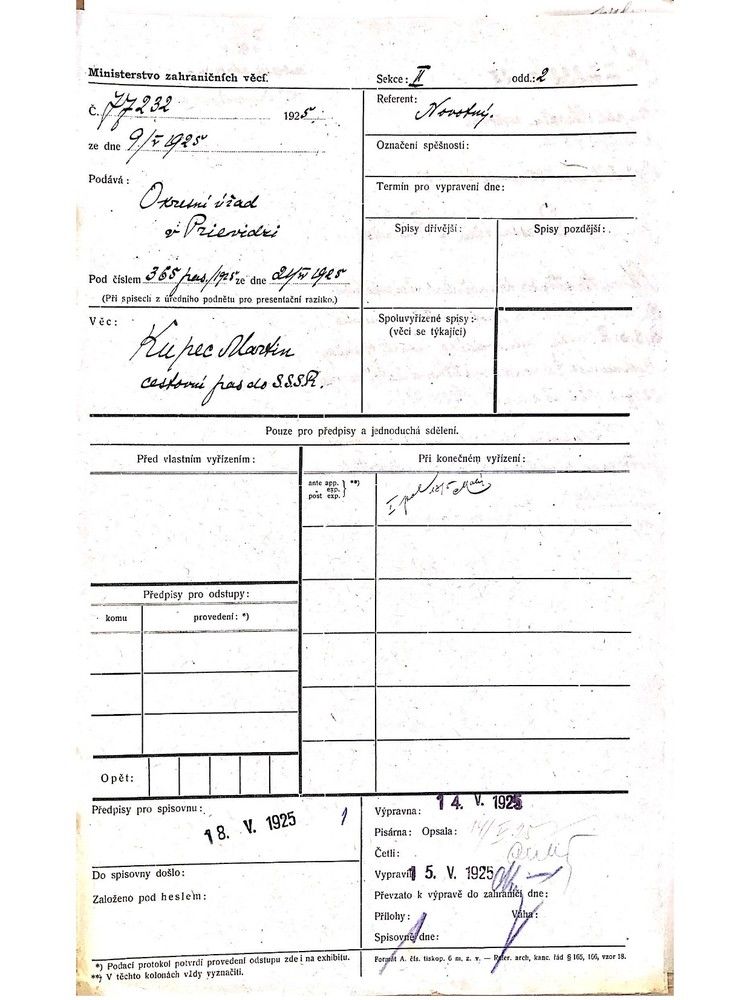 Ministerstvo zahraničních věcí.
Sekce: II odd.: 2
Č. 77232 1925
ze dne 9/V 1925
Referent: Novotný.
Označení spěšnosti:
Termín pro vypravení dne:
Podává:
Okresní úřad
v Prievidzi
Pod číslem 365 pas./1925 ze dne 21/IV 1925
(Při spisech z úředního podnětu pro presentační razítko.)
Spisy dřívější:
Spisy pozdější:
Věc:
Kupec Martin
cestovní pas do S.S.S.R.
Spoluvyřízené spisy:
(věci se týkající)
Pouze pro předpisy a jednoduchá sdělení.
Před vlastním vyřízením:
Při konečném vyřízení:
ante app.
„ exp.
post exp.
**)
Předpisy pro odstupy:
komu
provedení: *)
Opět:
Předpisy pro spisovnu:
18. V. 1925
1
Do spisovny došlo:
Založeno pod heslem:
Výpravna: 14. V. 1925
Písárna: Opsala:
Četli:
Vypravil 15. V. 1925
Převzato k výpravě do zahraničí dne:
Přílohy: Váha:
Spisovně dne:
*) Podací protokol potvrdí provedení odstupu zde i na exhibitu.
**) V těchto kolonách vždy vyznačiti.
Formát A. čís. tiskop. 6 m. z. v. — Refer. arch, kanc. řád § 165, 166, vzor 18.